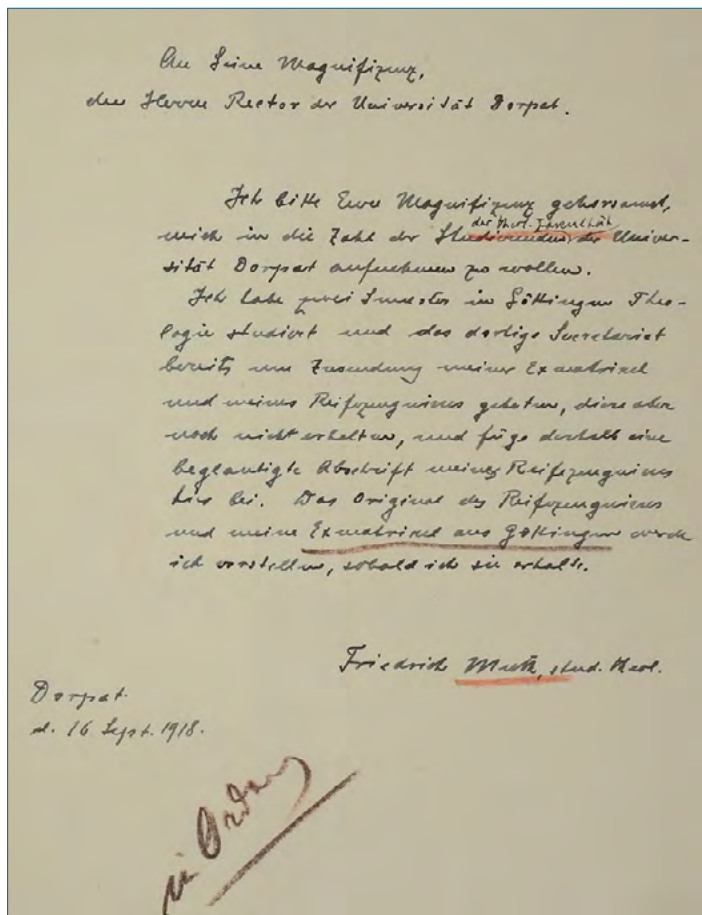 An Seine Magnifizenz,
den Herrn Rector der Universität Dorpat.
Ich bitte Euer Magnifizenz gehorsamst,
der theol. Facultät
mich in die Zahl der Studierenden der Univer-
sität Dorpat aufnehmen zu wollen.
Ich habe zwei Semester in Göttingen Theo-
logie studiert und das dortige Secretariat
bereits um Zusendung meiner Exmatrikel
und meines Reifezeugnisses gebeten, diese aber
noch nicht erhalten, und füge deshalb eine
beglaubigte Abschrift meines Reifezeugnisses
hier bei. Das Original des Reifezeugnisses
und meine Exmatrikel aus Göttingen werde
ich vorstellen, sobald ich sie erhalte.
Friedrich stud. theol.
Dorpat.
d. 16 Sept. 1918.
in Ordnung